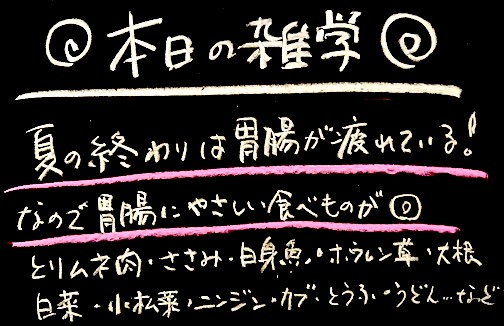 ◎本日の雑学◎
夏の終わりは胃腸が疲れている!
なので胃腸にやさしい食べものが◎
とりムネ肉・ささみ・白身魚・ホウレン草・大根
白菜・小松菜・ニンジン・カブ・とうふ・うどん…など